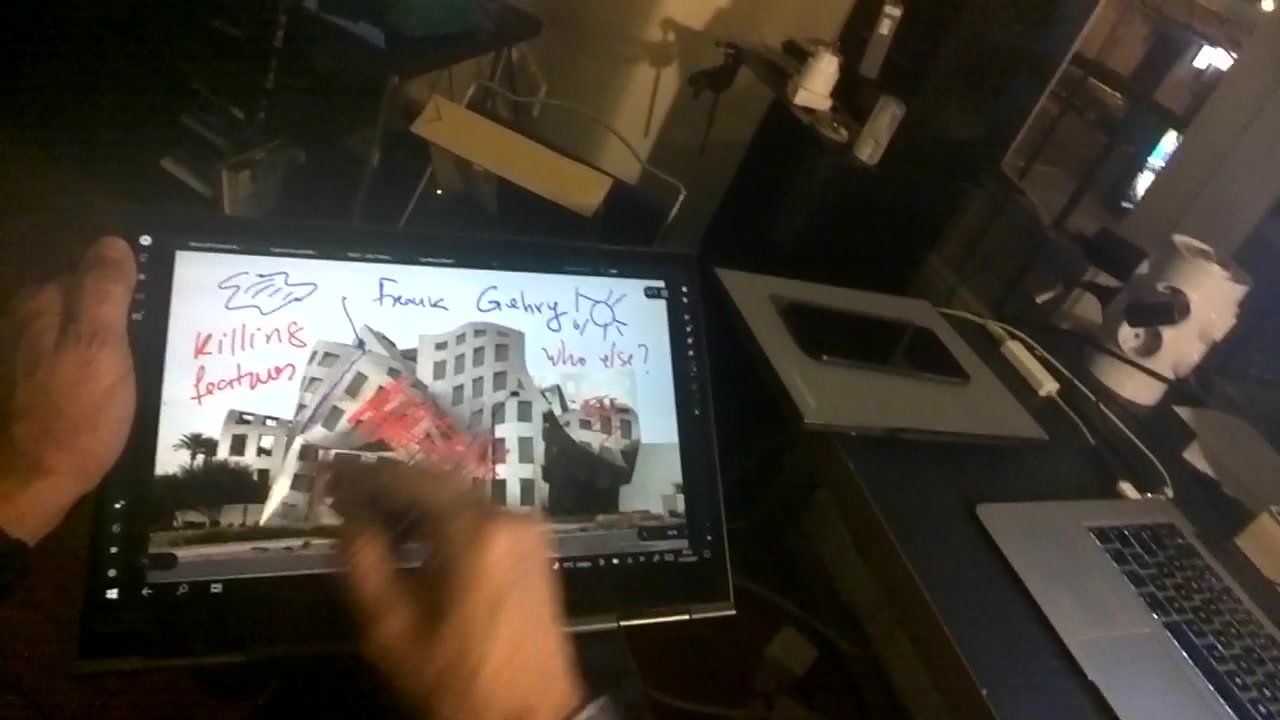 Frank Gehry
Killing
features
who else?